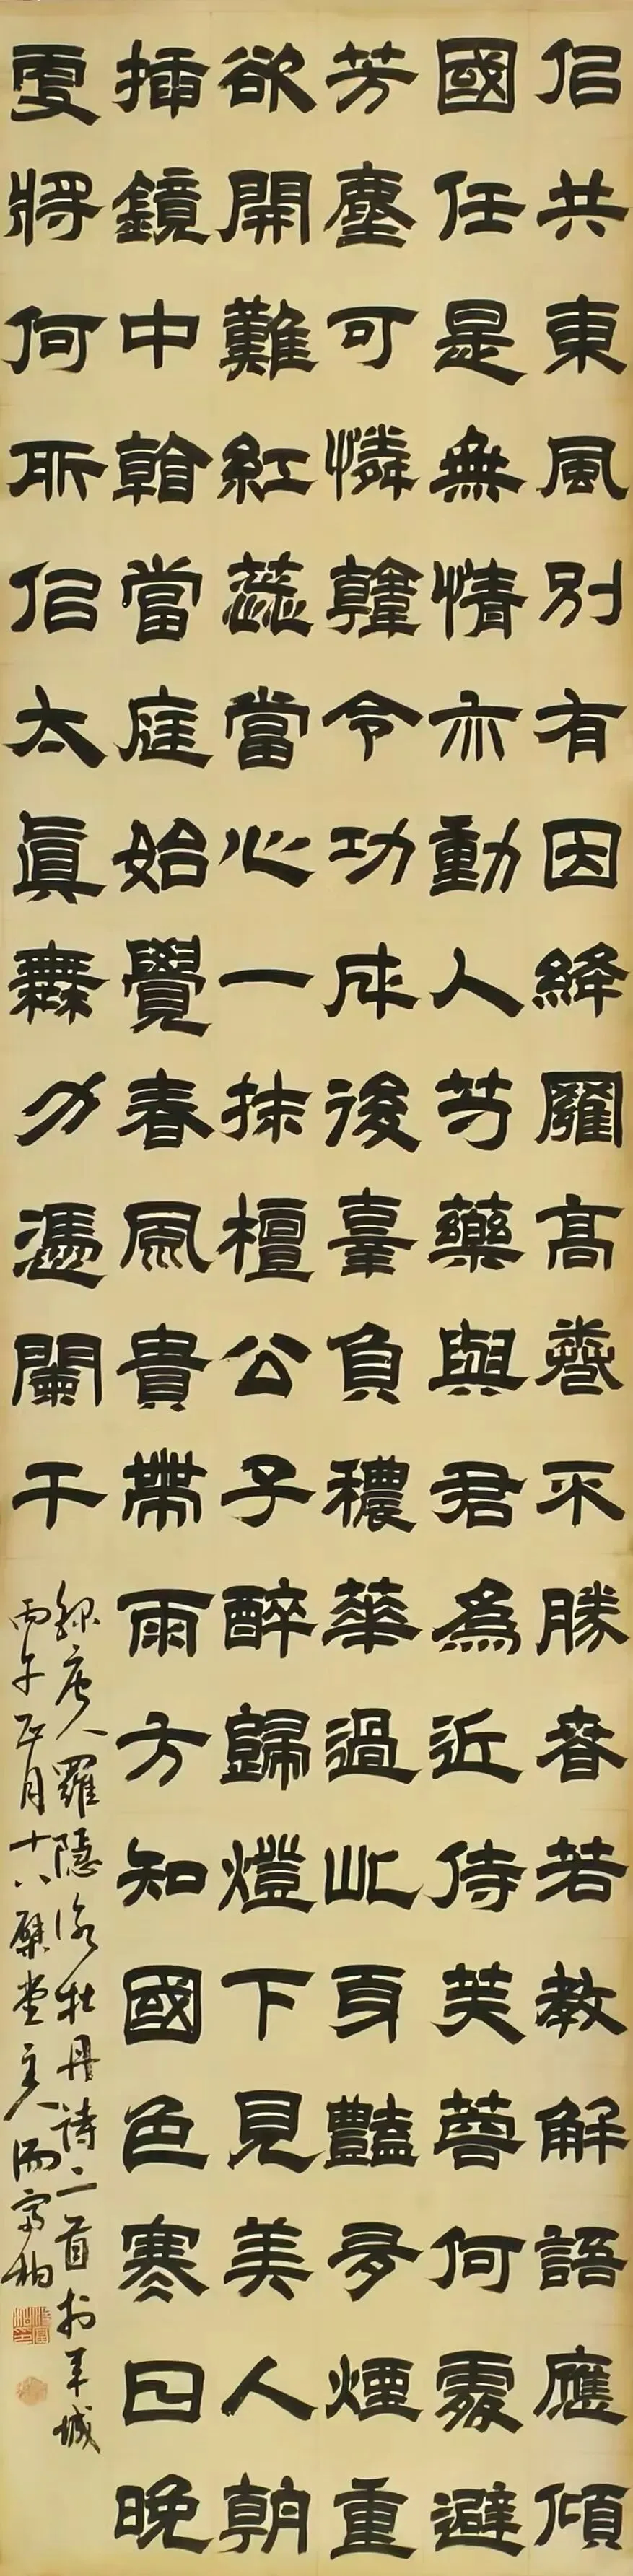 佀共東風別有因絳羅高卷不勝春若教解語應傾
國任是無情亦動人芍藥與君為近侍芙蓉何處避
芳塵可憐韓令功成後辜負穠華過此身豔多煙重
欲開難紅蕊當心一抹檀公子醉歸燈下見美人朝
插鏡中看當庭始覺春風貴帶雨方知國色寒日晚
更將何所佀太真無力憑闌干
錄唐人羅隱詠牡丹詩二首於羊城
丙午正月十八檗堂主人